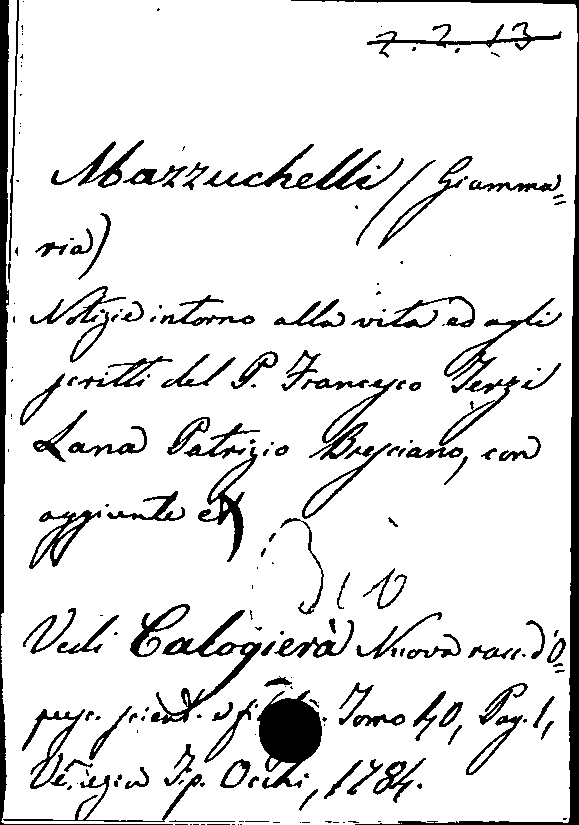 2.2.13
Mazzuchelli (Giamma=
ria)
Notizie intorno alla vita ed agli
scritti del P. Francesco Terzi
Lana Patrizio Bresciano, con
aggiunte
Vedi Calogierà Nuova racc. d'O=
pusc. scient. e fil. Tomo 40, Pag. 1,
Venezia T.p. Occhi, 1784.